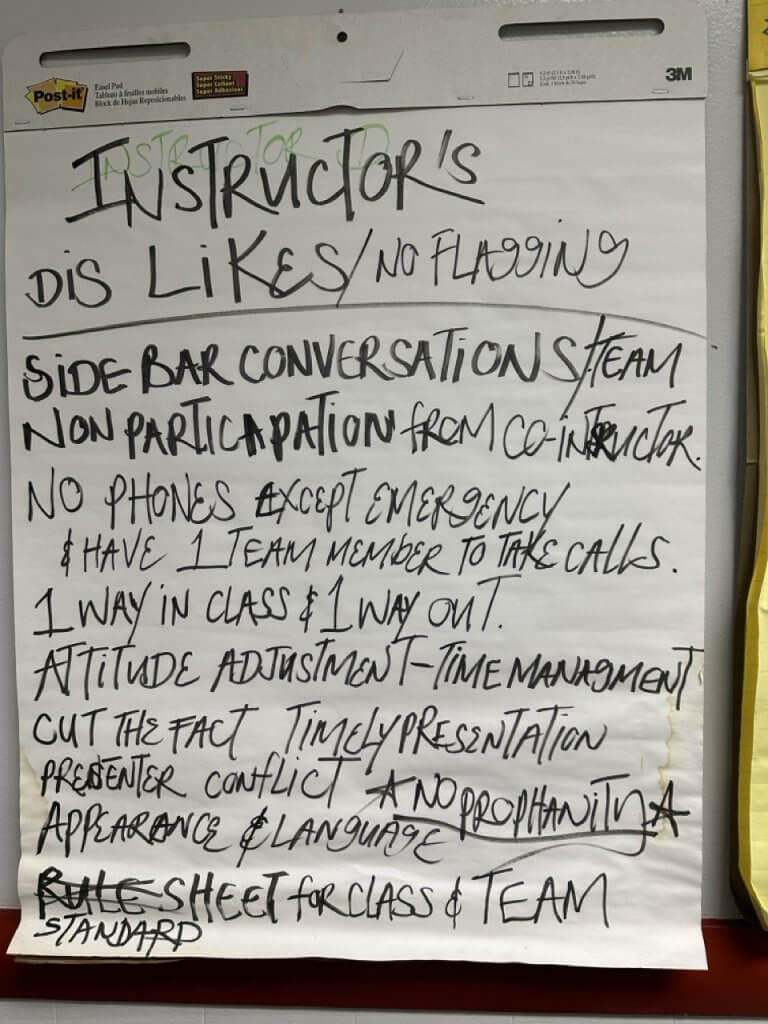 Post-it
Easel Pad
Tableau à feuilles mobiles
Block de Hojas Reposicionables
Super Sticky
Super Collant
Super Adhesivas
3M
INSTRUCTOR
INSTRUCTOR'S
DIS LIKES/NO FLAGGING
SIDE BAR CONVERSATIONS/TEAM
NON PARTICAPATION FROM CO-INTRUCTOR.
NO PHONES EXCEPT EMERGENCY
& HAVE 1 TEAM MEMBER TO TAKE CALLS.
1 WAY IN CLASS & 1 WAY OUT.
ATTITUDE ADJUSTMENT-TIME MANAGMENT
CUT THE FACT TIMELY PRESENTATION
PRESENTER CONFLICT ☆ NO PROPHANITY ☆
APPEARANCE & LANGUAGE
RULE SHEET FOR CLASS & TEAM
STANDARD